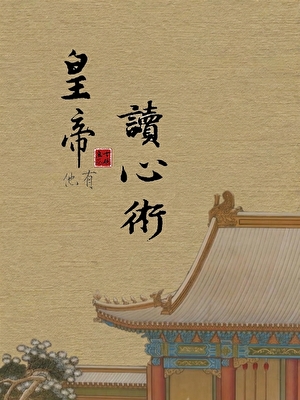 皇帝
他有
讀心術